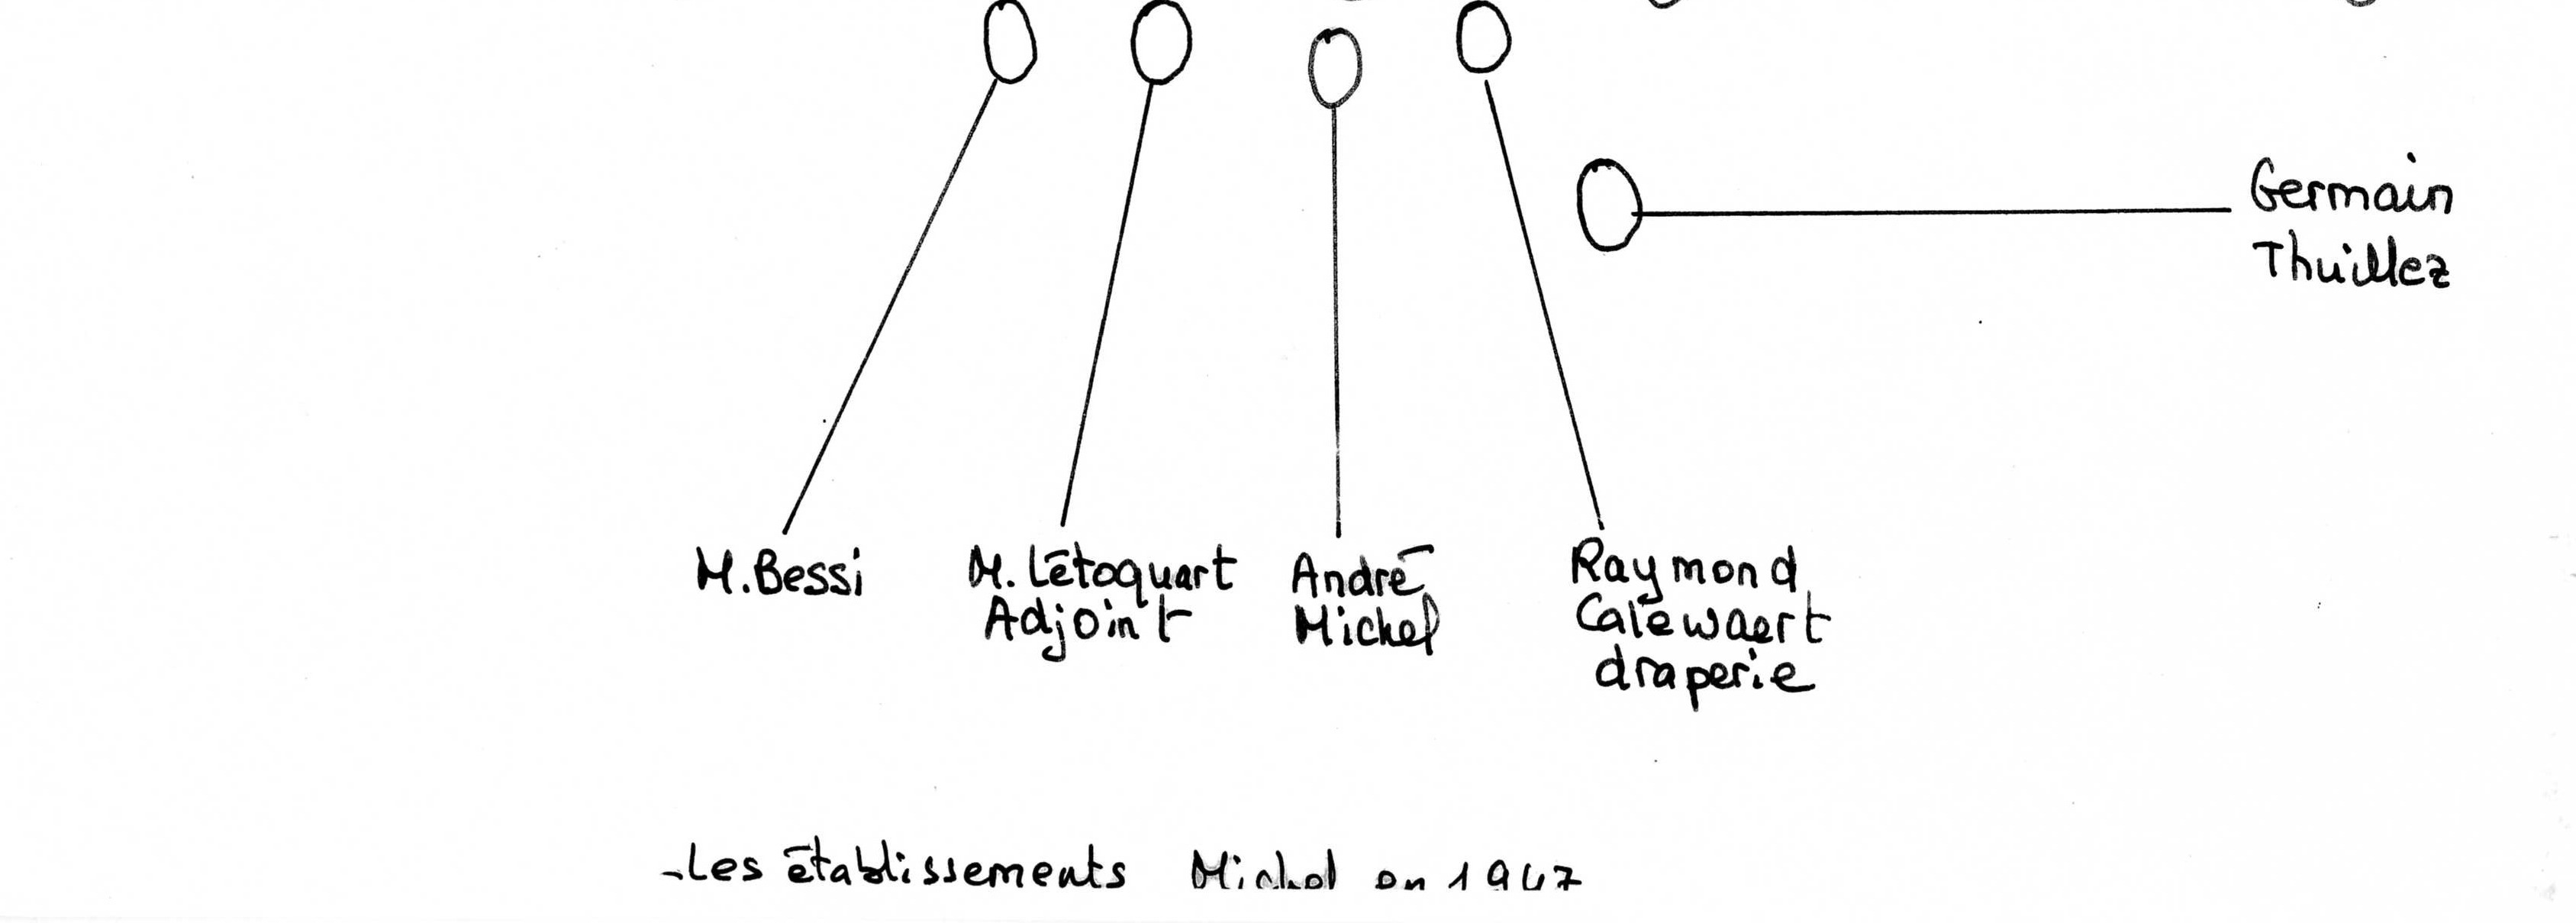 Germain
Thuillez
M. Bessi
M. Létoquart
Adjoint
André
Michel
Raymond
Calewaert
draperie
- Les établissements Michel en 1947